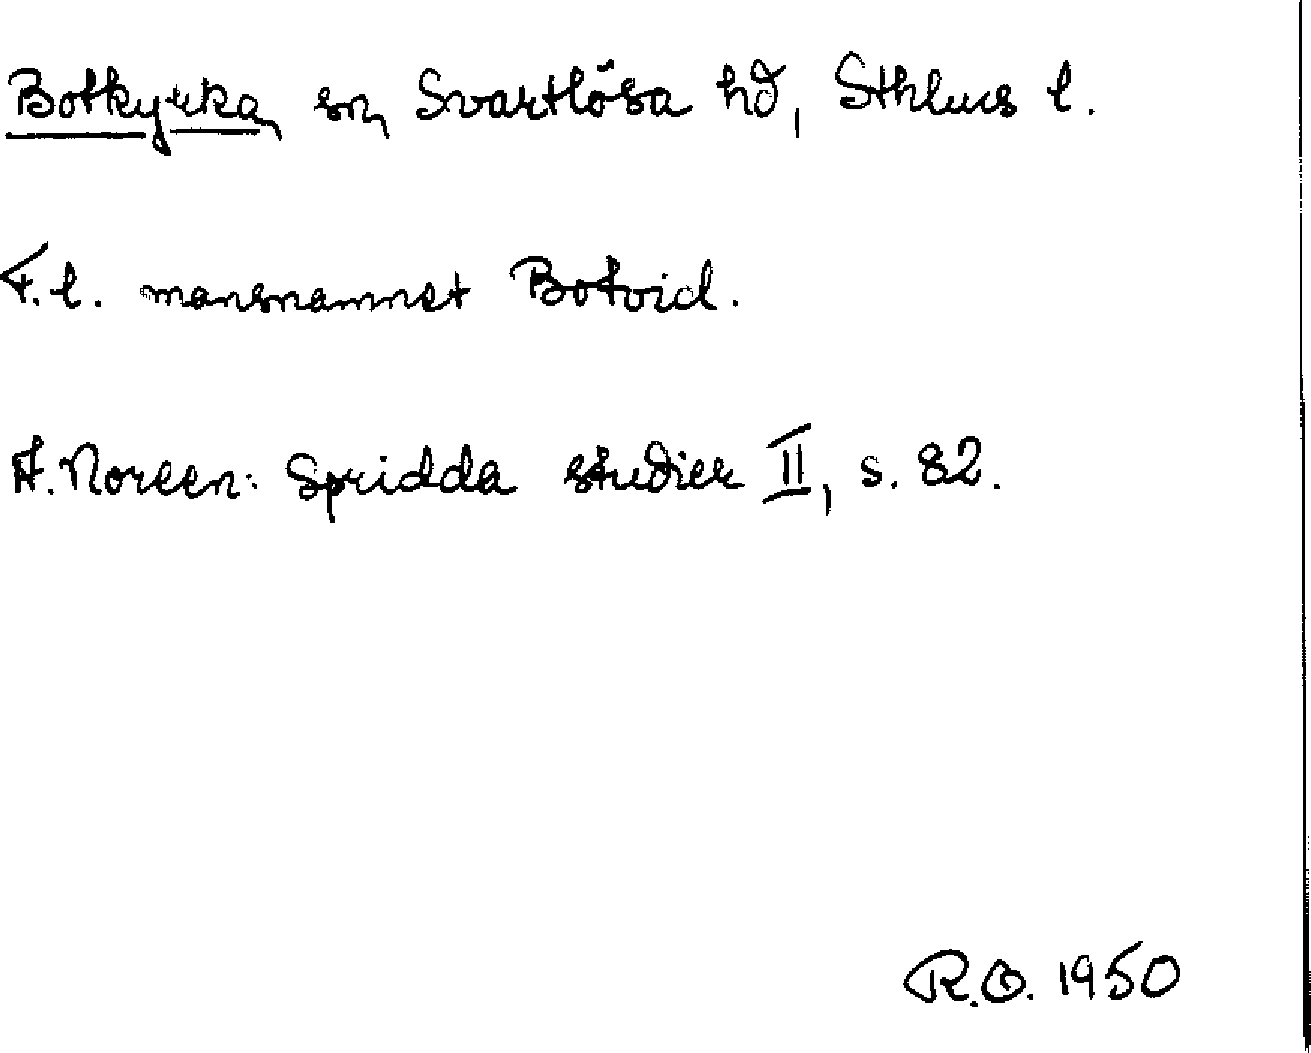 Botkyrka sn, Svartlösa hd, Sthlms l.
F.l. mansnamnet Botvid.
A. Noreen: Spridda studier II, s. 82.
R.O. 1950